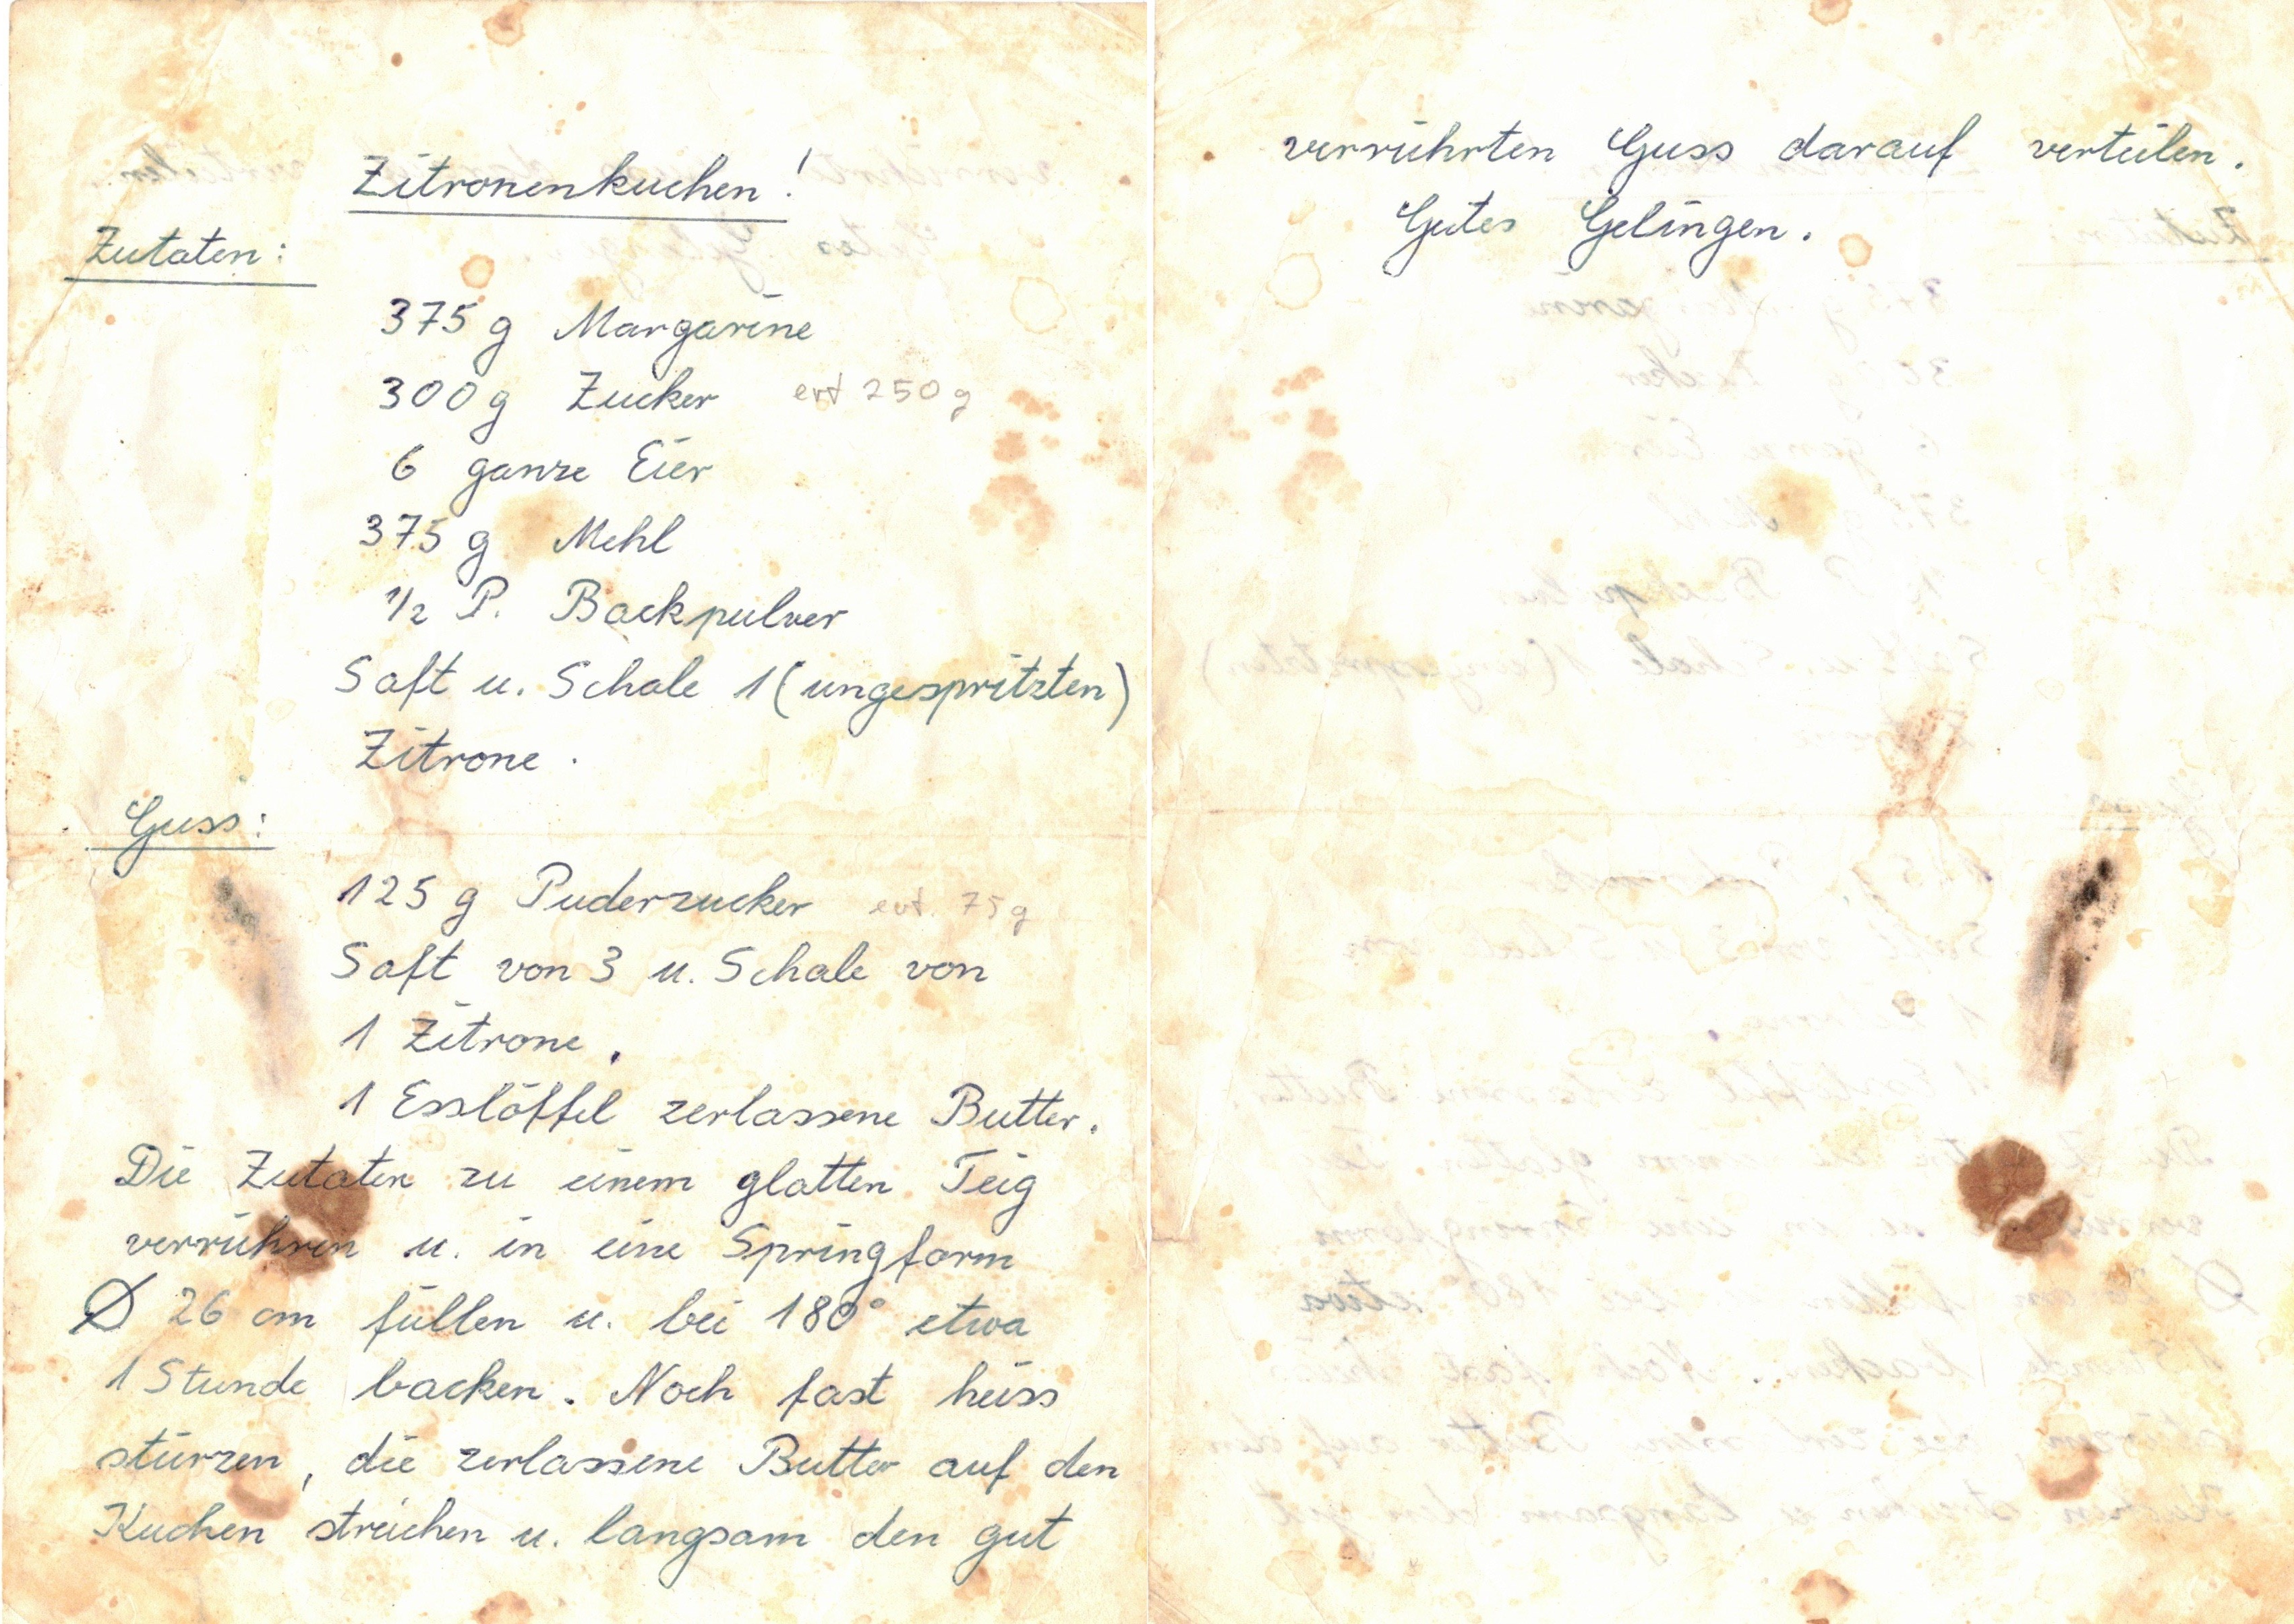 Zitronenkuchen!
Zutaten:
375 g Margarine
300 g Zucker evt 250 g
6 ganze Eier
375 g Mehl
1/2 P. Backpulver
Saft u. Schale 1 (ungespritzten)
Zitrone.
Guss:
125 g Puderzucker evt. 75 g
Saft von 3 u. Schale von
1 Zitrone.
1 Esslöffel zerlassene Butter.
Die Zutaten zu einem glatten Teig
verrühren u. in eine Springform
Ø 26 cm füllen u. bei 180° etwa
1 Stunde backen. Noch fast heiss
stürzen, die zerlassene Butter auf den
Kuchen streichen u. langsam den gut
verrührten Guss darauf verteilen.
Gutes Gelingen.